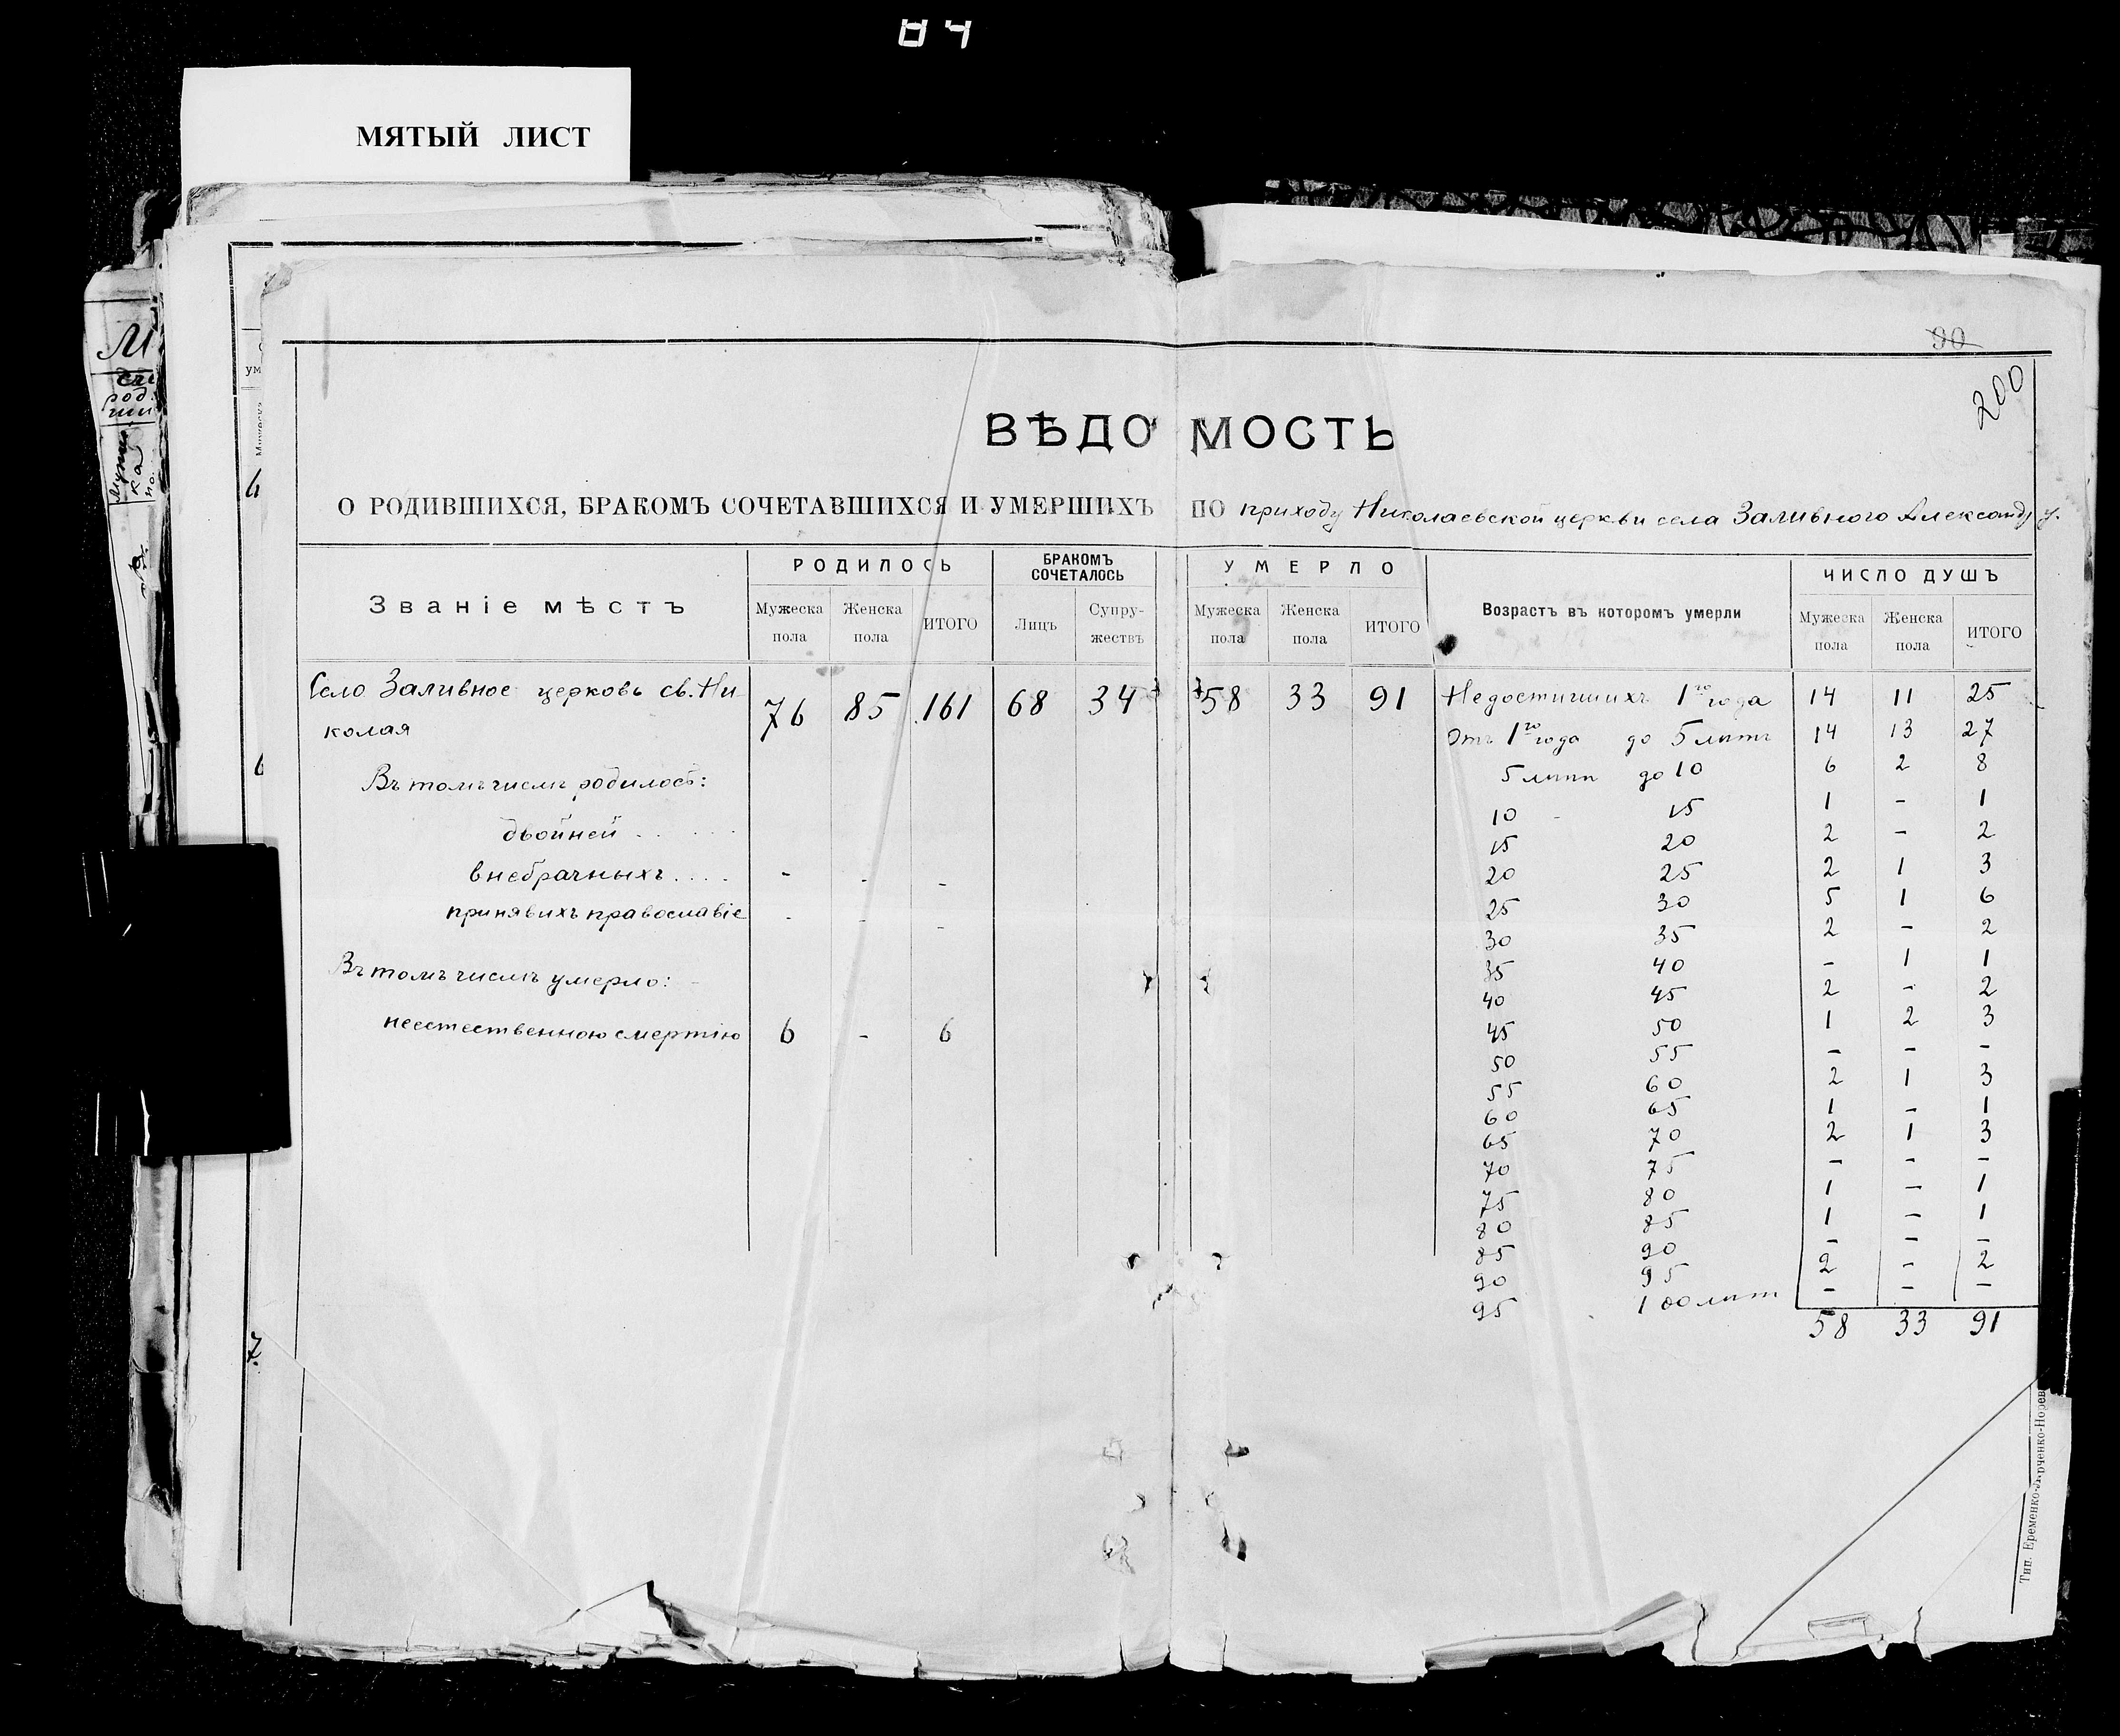 МЯТЫЙ ЛИСТ
90
200
ВѢДОМОСТЬ
О РОДИВШИХСЯ, БРАКОМЪ СОЧЕТАВШИХСЯ И УМЕРШИХЪ ПО приходу Николаевской церкви села Заливного Александ. у.
Званіе мѣстъ
РОДИЛОСЬ
БРАКОМЪ СОЧЕТАЛОСЬ
УМЕРЛО
Возрастъ въ которомъ умерли
ЧИСЛО ДУШЪ
Мужеска пола Женска пола ИТОГО Лицъ Супру-жествъ Мужеска пола Женска пола ИТОГО Мужеска пола Женска пола ИТОГО
Село Заливное церковь св. Ни- 76 85 161 68 34 58 33 91 Недостигшихъ 1го года 14 11 25
колая Отъ 1го года до 5 лѣтъ 14 13 27
Въ томъ числѣ родилось: 5 лѣтъ до 10 6 2 8
10 - 15 1 - 1
двойней . . . . . 15 20 2 - 2
внебрачныхъ . . . . - - - 20 25 2 1 3
принявихъ православіе - - - 25 30 5 1 6
30 35 2 - 2
Въ томъ числѣ умерло: 35 40 - 1 1
40 45 2 - 2
неестественною смертію 6 - 6 45 50 1 2 3
50 55 - - -
55 60 2 1 3
60 65 1 - 1
65 70 2 1 3
70 75 - - -
75 80 1 - 1
80 85 1 - 1
85 90 - - -
90 95 2 - 2
95 100 лѣтъ - - -
58 33 91
7.
Тип. Еременко